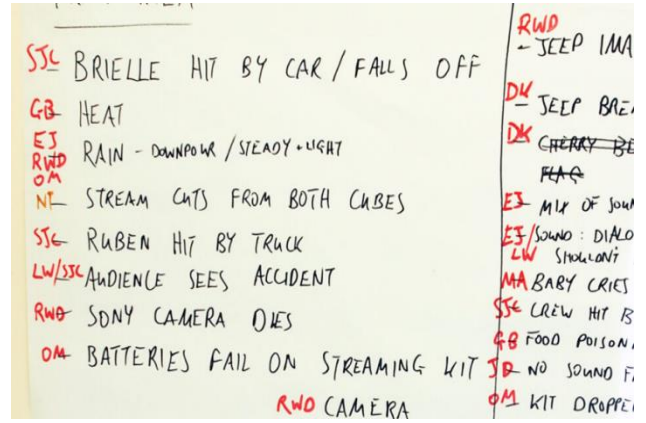 SJC BRIELLE HIT BY CAR / FALLS OFF
GB HEAT
EJ
RWD RAIN - DOWNPOUR / STEADY + LIGHT
OM
NI STREAM CUTS FROM BOTH CUBES
SJC RUBEN HIT BY TRUCK
LW/SJC AUDIENCE SEES ACCIDENT
RWD SONY CAMERA DIES
OM BATTERIES FAIL ON STREAMING KIT
RWD CAMERA
RWD
- JEEP IMA
DK - JEEP BREA
DK CHERRY BE
FLAG
EJ MIX OF SOUN
EJ/SOUND : DIALO
LW SHOULDN'T
MA BABY CRIES
SJC CREW HIT B
GB FOOD POISON
JD NO SOUND F
OM KIT DROPPE